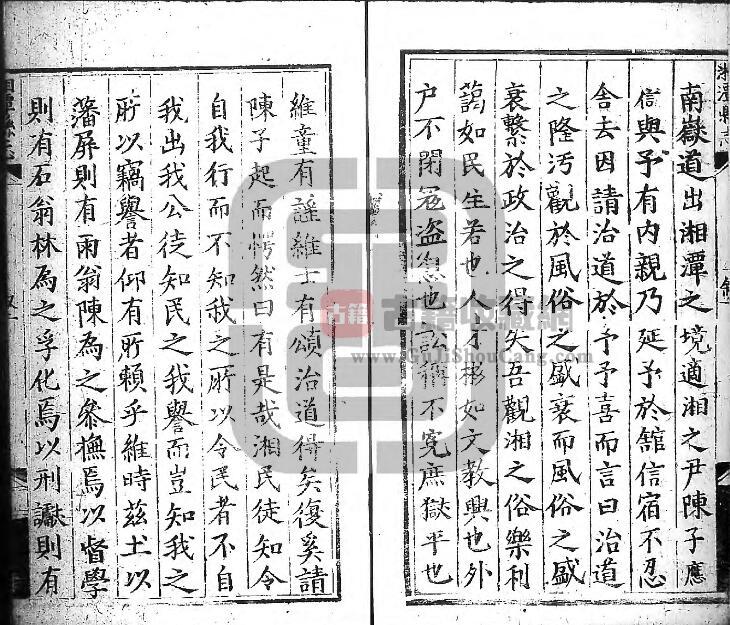 湘潭縣志
南嶽道出湘潭之境適湘之尹陳子應
信與予有内親乃延予於舘信宿不忍
舍去因請治道於予予喜而言曰治道
之隆汚觀於風俗之盛衰而風俗之盛
衰繫於政治之得失吾觀湘之俗樂利
藹如民生若也人才彬如文教興也外
户不閉冦盗息也訟不寃庶獄平也
維童有謡維士有頌治道得矣復奚請
陳子起而愕然曰有是哉湘民徒知令
自我行而不知我之所以令民者不自
我出我公徒知民之我譽而豈知我之
所以竊譽者仰有所賴乎維時兹土以
藩屏則有雨翁陳為之叅撫焉以督學
則有石翁林為之孚化焉以刑讞則有
古籍
古籍收藏網
www.GuJiShouCang.com